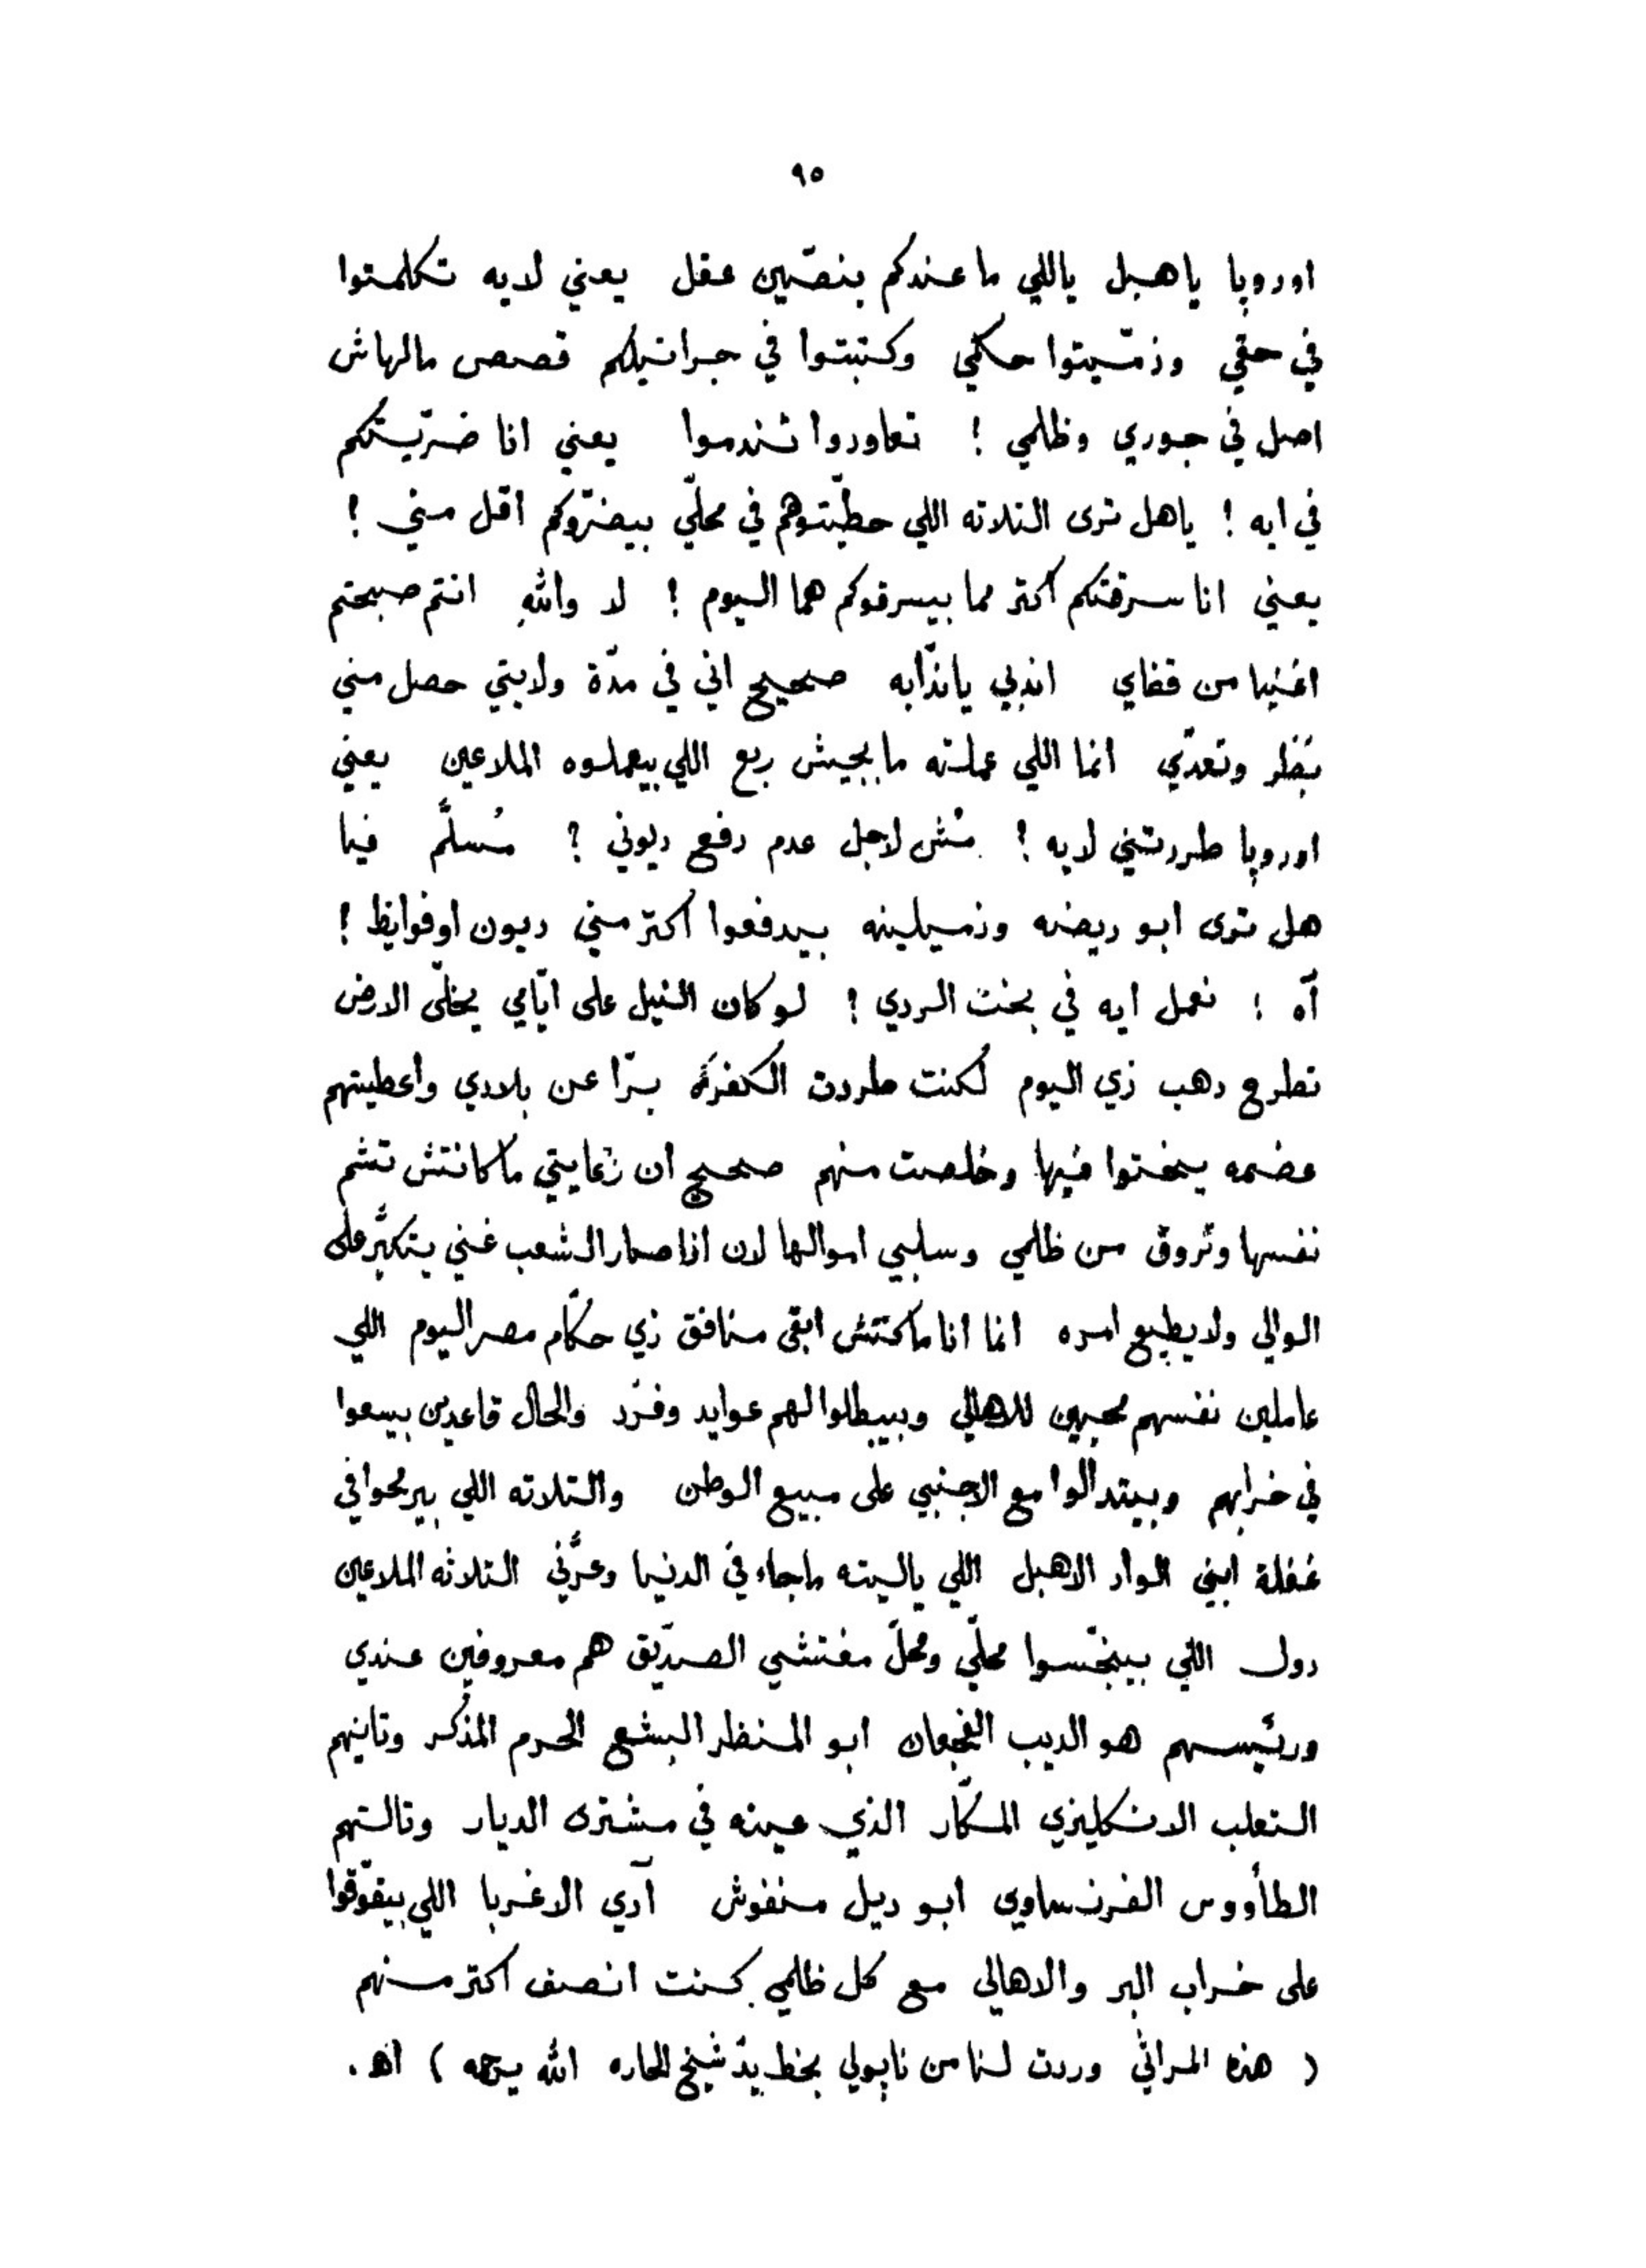 ٩٥
اوروبا ياهبل ياللي ما عندكم بنصّين عقل يعني لايه تكلمتوا
في حقي وذمّيتوا حكمي وكتبتوا في جرانيلكم قصص مالهاش
اصل في جوري وظلمي ! تعاودوا تندموا يعني انا ضرّيتكم
في ايه ! ياهل ترى التلاته اللي حطّيتوهم في محلّي بيضرّوكم اقل مني !
يعني انا سرقتكم اكتر مما بيسرقوكم هما اليوم ! لا واللهِ انتم صبحتم
اغنيا من قفاي اندبي ياندّابه صحيح اني في مدّة ولايتي حصل مني
وتعدّي انما اللي عملته ما يجيش ربع اللي بيعملوه الملاعين يعني
اوروبا طردتني لايه ! مُش لاجل عدم دفع ديوني ? مُسلَّم فيا
هل ترى ابو ريضه وزميلينه بيدفعوا اكتر مني ديون اوفوايظ !
آه ! نعمل ايه في بخت الردي ! لو كان النيل على ايّامي يخلّي الارض
تطرح دهب زي اليوم لكنت طردت الكفرَة برّا عن بلادي واعطيتهم
عضمه ينختوا فيها وخلصت منهم صحيح ان رعايتي ما كانتش تشم
نفسها وتروق من ظلمي وسلبي اموالها لان اذا صار الشعب غني يتكبَّر على
الوالي ولا يطيع امره انما انا ماكنتش ابقى منافق زي حكّام مصر اليوم اللي
عاملين نفسهم محبين للاهالي وبيبطلوا لهم عوايد وفرَد والحال قاعدين بيسعوا
في خرابهم وبيتدالوا مع الاجنبي على مبيع الوطن والتلاته اللي بيرمحوا في
غفلة ابني الواد الاهبل اللي ياليته ماجاء في الدنيا وعرَّني التلاته الملاعين
دول اللي بينجّسوا محلّي ومحلّ مفتشي الصدّيق هم معروفين عندي
ورئيسهم هو الديب الفجعان ابو المنظر البشع الحرم المذكر وتانيهم
التعلب الانكليزي المكّار الذي عينه في مشترى الديار وتالتهم
الطأووس الفرنساوي ابو ديل منفوش آدي الاغربا اللي بيقوّقوا
على خراب البر والاهالي مع كل ظلمي كنت انصف اكتر منهم
( هذه المراثي وردت لنا من ناپولي بخط يدّ شيخ الحاره الله يرحمه ) اهـ .